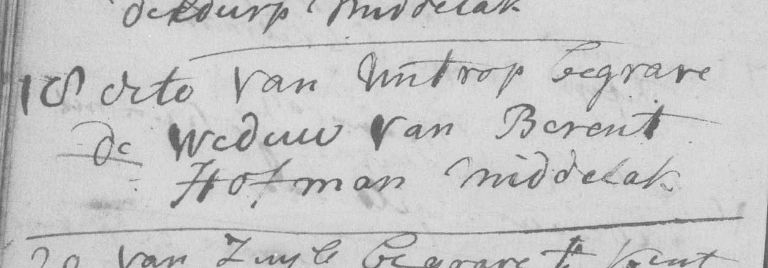 middelak
18 dito van Untrop begrave
de weduw van Berent
Hofman middelak
20 van Zuyle begrave